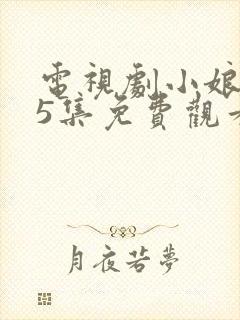 電視劇小娘
5集免費觀看
月夜若夢